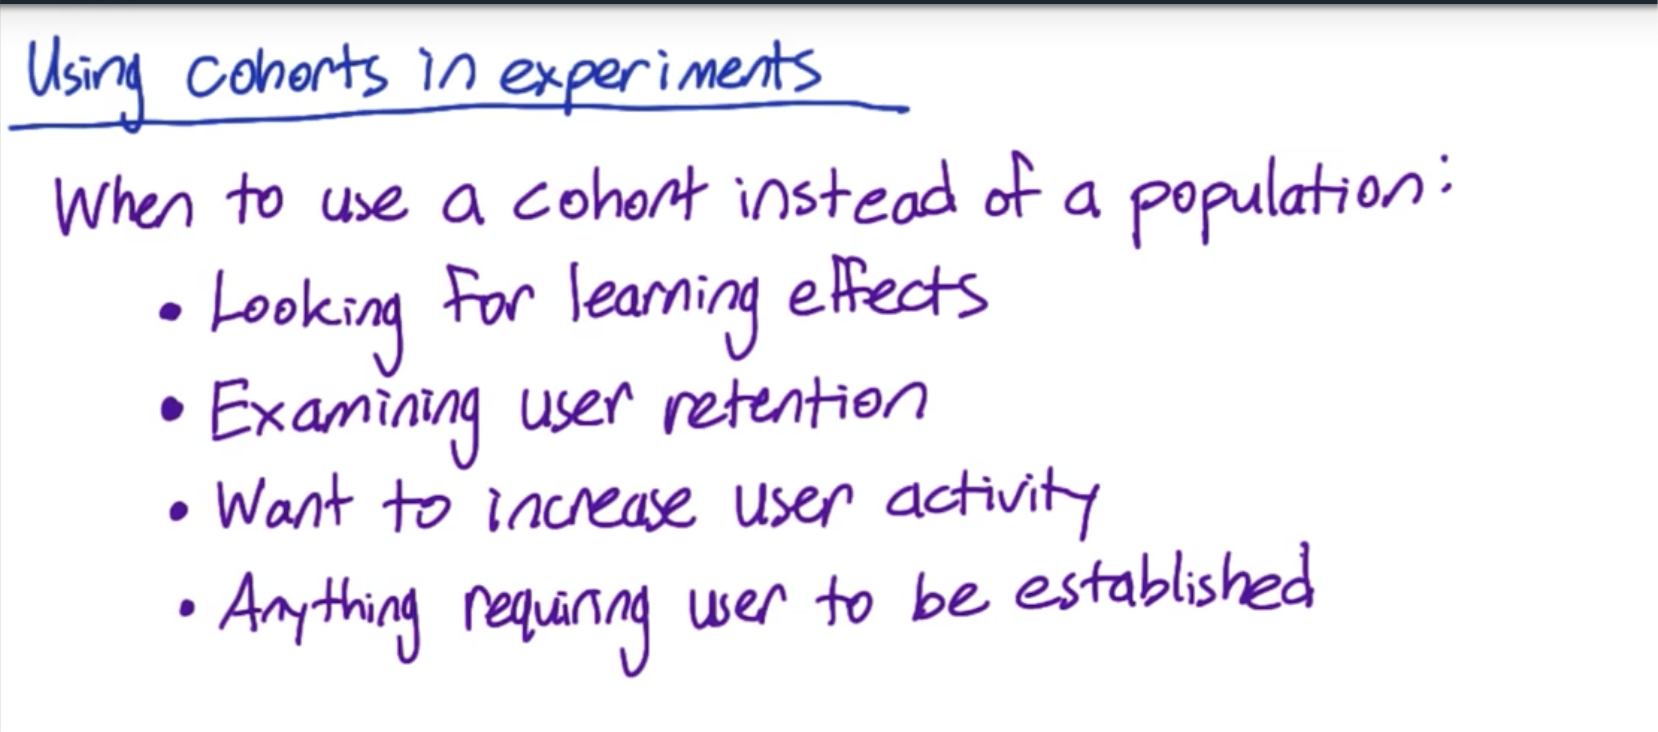 Using cohorts in experiments
When to use a cohort instead of a population:
• Looking for learning effects
• Examining user retention
• Want to increase user activity
• Anything requiring user to be established